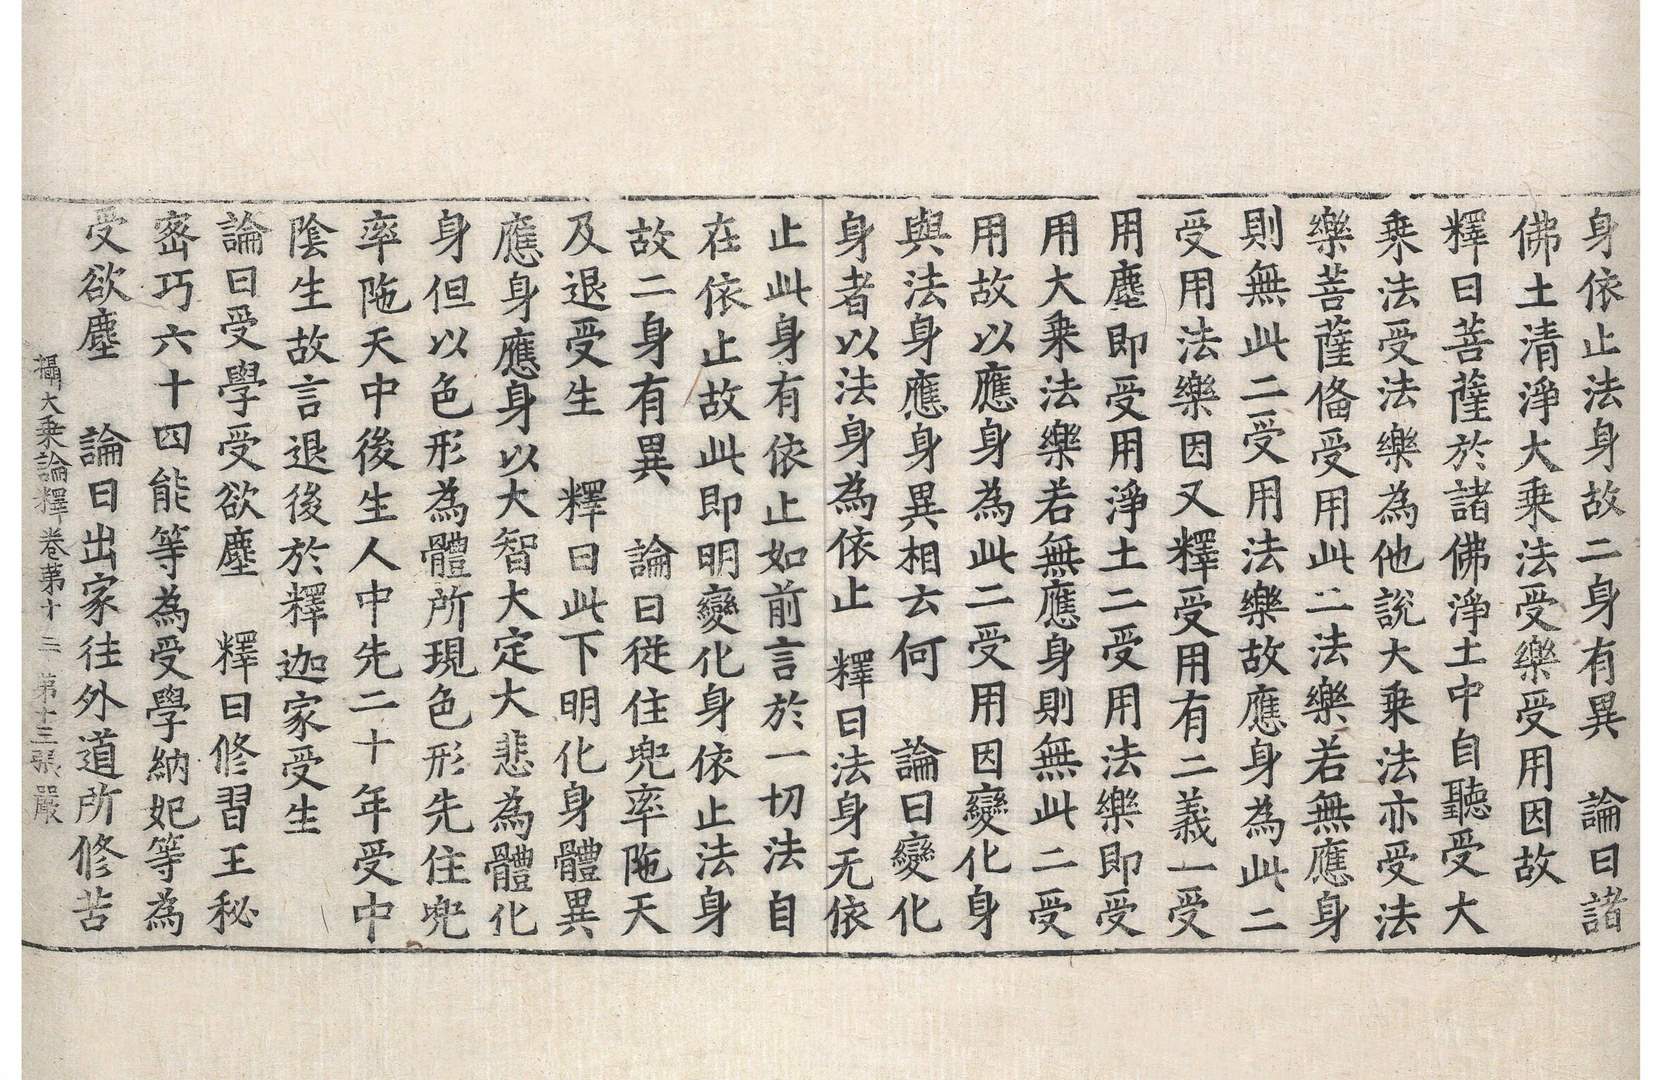 身依止法身故二身有異　論曰諸
佛土清淨大乗法受樂受用因故
釋曰菩薩於諸佛淨土中自聽受大
乗法受法樂為他説大乗法亦受法
樂菩薩俻受用此二法樂若無應身
則無此二受用法樂故應身為此二
受用法樂因又釋受用有二義一受
用塵即受用淨土二受用法樂即受
用大乗法樂若無應身則無此二受
用故以應身為此二受用因變化身
與法身應身異相云何　論曰變化
身者以法身為依止　釋曰法身无依
止此身有依止如前言於一切法自
在依止故此即明變化身依止法身
故二身有異　論曰從住兜率陁天
及退受生　釋曰此下明化身體異
應身應身以大智大定大悲為體化
身但以色形為體所現色形先住兜
率陁天中後生人中先二十年受中
陰生故言退後於釋迦家受生
論曰受學受欲塵　釋曰修習王秘
宻巧六十四能等為受學納妃等為
受欲塵　論曰出家往外道所修苦
攝大乗論釋卷苐十三　第十三張　嚴